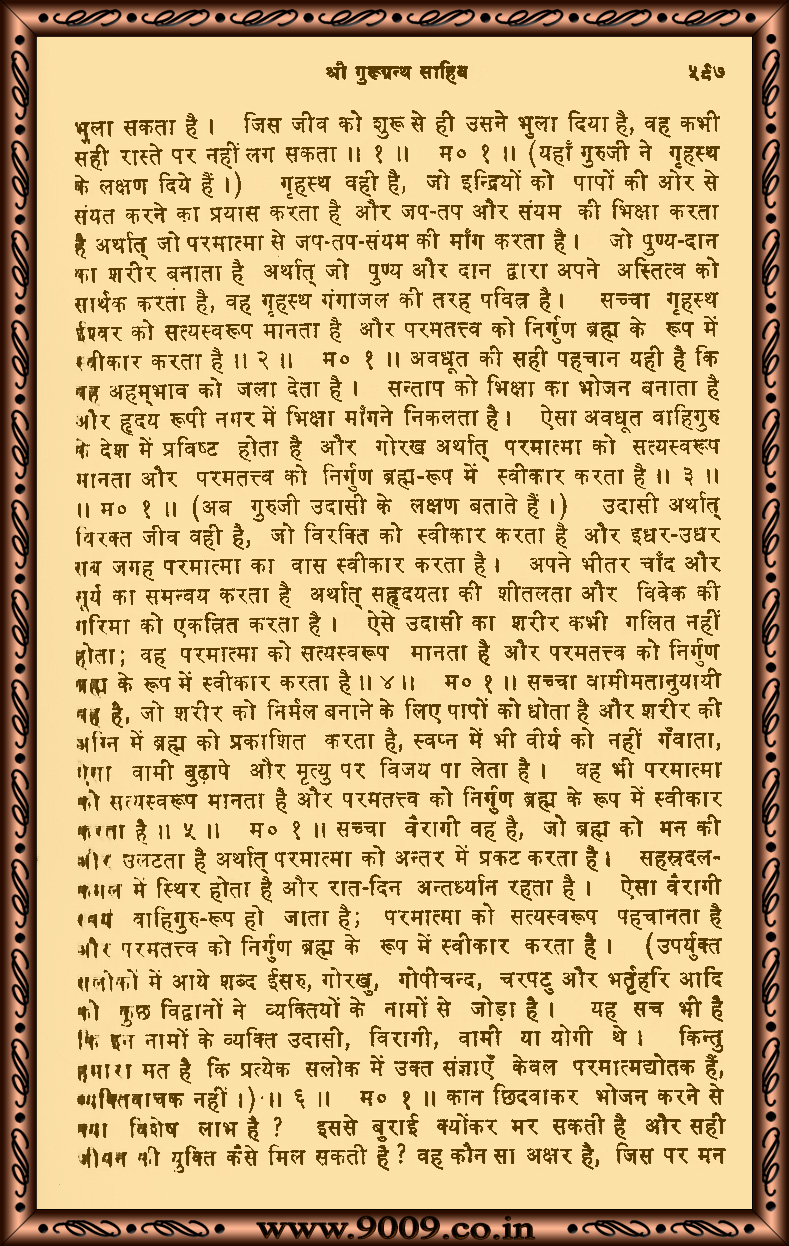 श्री गुरूग्रन्थ साहिब ५९७
भुला सकता है । जिस जीव को शुरू से ही उसने भुला दिया है, वह कभी
सही रास्ते पर नहीं लग सकता ॥ १ ॥ म० १ ॥ (यहाँ गुरुजी ने गृहस्थ
के लक्षण दिये हैं ।) गृहस्थ वही है, जो इन्द्रियों को पापों की ओर से
संयत करने का प्रयास करता है और जप-तप और संयम की भिक्षा करता
है अर्थात् जो परमात्मा से जप-तप-संयम की माँग करता है । जो पुण्य-दान
का शरीर बनाता है अर्थात् जो पुण्य और दान द्वारा अपने अस्तित्व को
सार्थक करता है, वह गृहस्थ गंगाजल की तरह पवित्र है । सच्चा गृहस्थ
ईश्वर को सत्यस्वरूप मानता है और परमतत्त्व को निर्गुण ब्रह्म के रूप में
स्वीकार करता है ॥ २ ॥ म० १ ॥ अवधूत की सही पहचान यही है कि
वह अहम्‌भाव को जला देता है । सन्ताप को भिक्षा का भोजन बनाता है
और हृदय रूपी नगर में भिक्षा माँगने निकलता है । ऐसा अवधूत वाहिगुरु
के देश में प्रविष्ट होता है और गोरख अर्थात् परमात्मा को सत्यस्वरूप
मानता और परमतत्त्व को निर्गुण ब्रह्म-रूप में स्वीकार करता है ॥ ३ ॥
॥ म० १ ॥ (अब गुरुजी उदासी के लक्षण बताते हैं ।) उदासी अर्थात्
विरक्त जीव वही है, जो विरक्ति को स्वीकार करता है और इधर-उधर
सब जगह परमात्मा का वास स्वीकार करता है । अपने भीतर चाँद और
सूर्य का समन्वय करता है अर्थात् सहृदयता की शीतलता और विवेक की
गरिमा को एकत्रित करता है । ऐसे उदासी का शरीर कभी गलित नहीं
होता; वह परमात्मा को सत्यस्वरूप मानता है और परमतत्त्व को निर्गुण
ब्रह्म के रूप में स्वीकार करता है ॥ ४ ॥ म० १ ॥ सच्चा वामीमतानुयायी
वह है, जो शरीर को निर्मल बनाने के लिए पापों को धोता है और शरीर की
अग्नि में ब्रह्म को प्रकाशित करता है, स्वप्न में भी वीर्य को नहीं गँवाता,
ऐसा वामी बुढ़ापे और मृत्यु पर विजय पा लेता है । वह भी परमात्मा
को सत्यस्वरूप मानता है और परमतत्त्व को निर्गुण ब्रह्म के रूप में स्वीकार
करता है ॥ ५ ॥ म० १ ॥ सच्चा वैरागी वह है, जो ब्रह्म को मन की
ओर उलटता है अर्थात् परमात्मा को अन्तर में प्रकट करता है । सहस्रदल-
कमल में स्थिर होता है और रात-दिन अन्तर्ध्यान रहता है । ऐसा वैरागी
स्वयं वाहिगुरु-रूप हो जाता है; परमात्मा को सत्यस्वरूप पहचानता है
और परमतत्त्व को निर्गुण ब्रह्म के रूप में स्वीकार करता है । (उपर्युक्त
सलोकों में आये शब्द ईसरु, गोरखु, गोपीचन्द, चरपटु और भर्तृहरि आदि
को कुछ विद्वानों ने व्यक्तियों के नामों से जोड़ा है । यह सच भी है
कि इन नामों के व्यक्ति उदासी, विरागी, वामी या योगी थे । किन्तु
हमारा मत है कि प्रत्येक सलोक में उक्त संज्ञाएँ केवल परमात्मद्योतक हैं,
व्यक्तिवाचक नहीं ।) ॥ ६ ॥ म० १ ॥ कान छिदवाकर भोजन करने से
क्या विशेष लाभ है ? इससे बुराई क्योंकर मर सकती है और सही
जीवन की युक्ति कैसे मिल सकती है ? वह कौन सा अक्षर है, जिस पर मन
www.9009.co.in